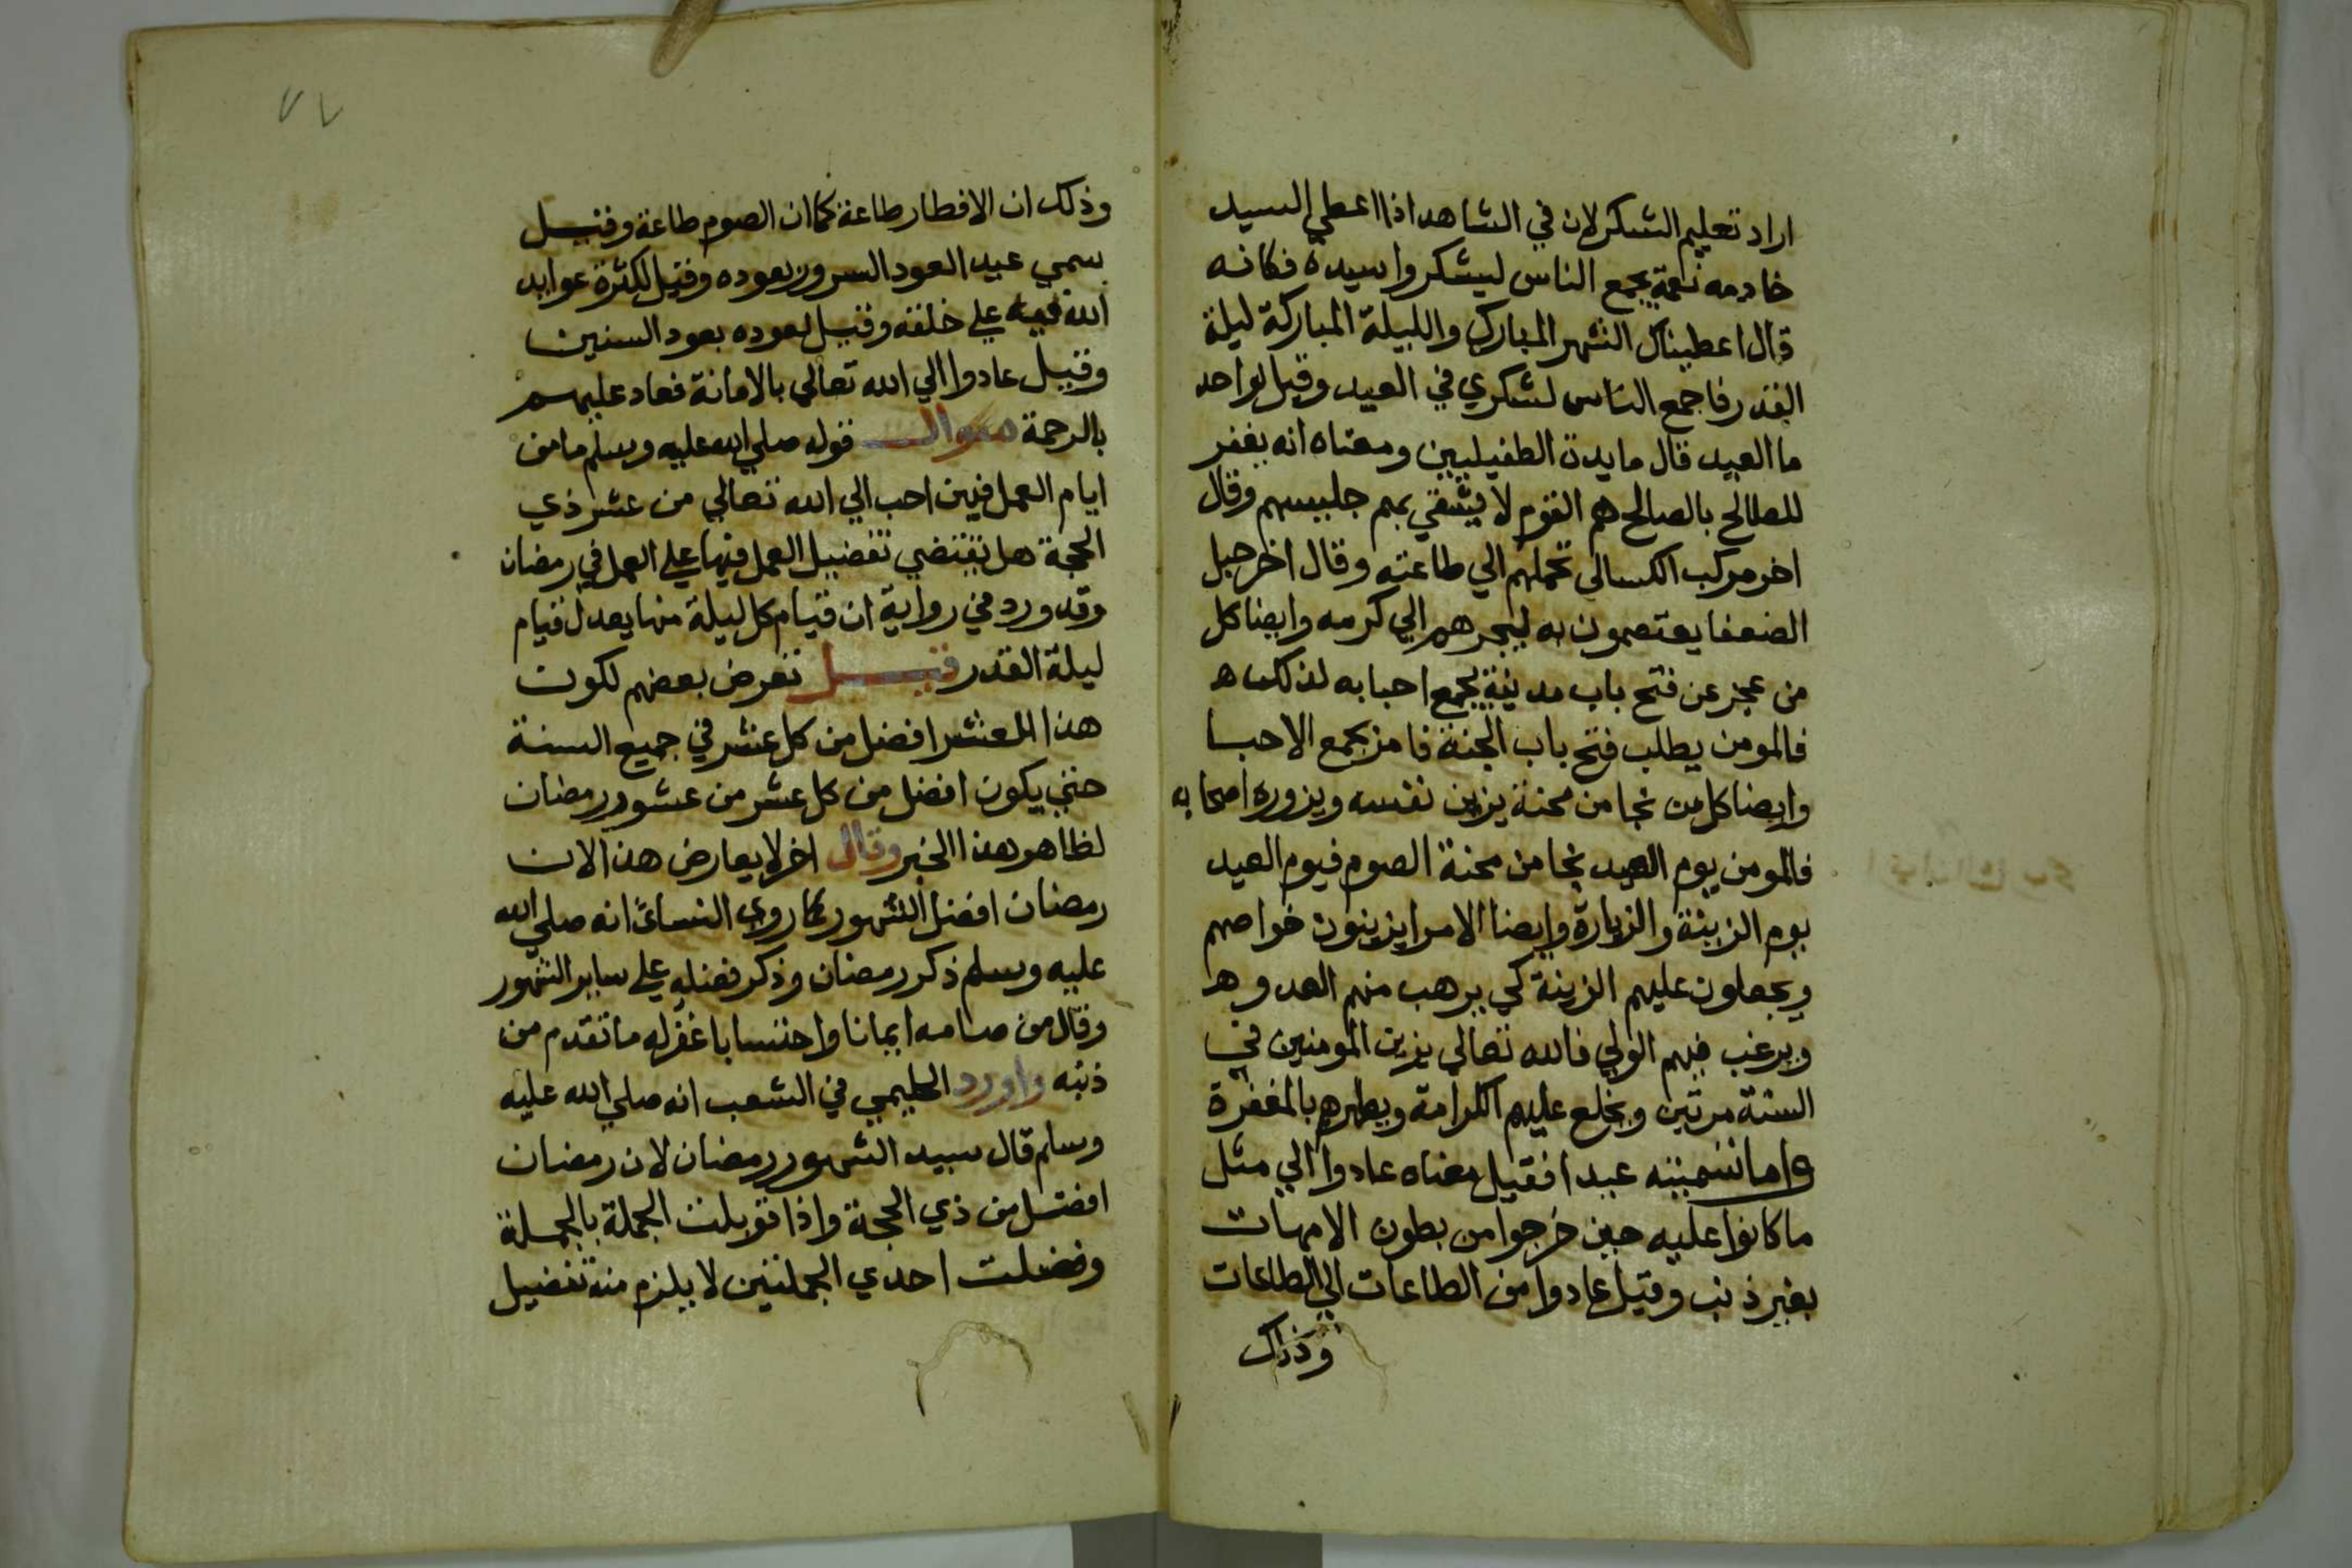 اراد تعليم الشكر لان في الشاهد اذا اعطي السيد
خادمه نعمة يجمع الناس ليشكروا سيده فكانه
قال اعطيناك الشهر المبارك والليلة المباركة ليلة
القدر فاجمع الناس لشكري في العيد وقيل لواحد
ما العيد قال مايدة الطفيليين ومعناه انه يغفر
للطالح بالصالح هم القوم لا يشقي بهم جليسهم وقال
اخر مركب الكسالي تحملهم الي طاعته وقال اخر حبل
الضعفا يعتصمون به ليجرهم الي كرمه وايضا كل
من عجز عن فتح باب مدينة يجمع احبابه لذلك
فالمومن يطلب فتح باب الجنة فامر بجمع الاحبا
وايضا كل من نجا من محنة يزين نفسه ويزوره اصحابه
فالمومن يوم العيد نجا من محنة الصوم فيوم العيد
يوم الزينة والزيارة وايضا الامرا يزينون خواصهم
ويجعلون عليهم الزينة كي يرهب منهم العدو
ويرغب فيهم الولي فالله تعالي يزين المومنين في
السنة مرتين ويخلع عليهم الكرامة ويطهرهم بالمغفرة
واما تسميته عيدا فقيل معناه عادوا الي مثل
ما كانوا عليه حين خرجوا من بطون الامهات
بغير ذنب وقيل عادوا من الطاعات الي الطاعات
وذلك
٧٧
وذلك ان الافطار طاعة كما ان الصوم طاعة وقيل
سمي عيد العود السرور بعوده وقيل لكثرة عوايد
الله فيه علي خلقه وقيل لعوده بعود السنين
وقيل عادوا الي الله تعالي بالامانة فعاد عليهم
بالرحمة سوال قوله صلي الله عليه وسلم ما من
ايام العمل فيهن احب الي الله تعالي من عشر ذي
الحجة هل يقتضي تفضيل العمل فيها علي العمل في رمضان
وقد ورد في رواية ان قيام كل ليلة منها يعدل قيام
ليلة القدر قيل تعرض بعضهم لكون
هذا العشر افضل من كل عشر في جميع السنة
حتي يكون افضل من كل عشر من عشور رمضان
لظاهر هذا الخبر وقال اخر لا يعارض هذا لان
رمضان افضل الشهور كما روي النسائ انه صلي الله
عليه وسلم ذكر رمضان وذكر فضله علي ساير الشهور
وقال من صامه ايمانا واحتسابا غفر له ما تقدم من
ذنبه واورد الحليمي في الشعب انه صلي الله عليه
وسلم قال سيد الشهور رمضان لان رمضان
افضل من ذي الحجة واذا قوبلت الجملة بالجملة
وفضلت احدي الجملتين لا يلزم منه تفضيل